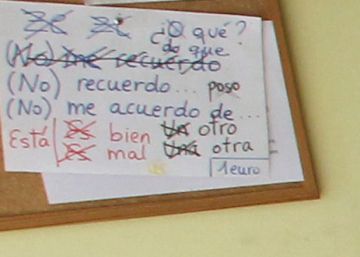 ¿O qué?
do que
(No) me recuerdo
(No) recuerdo... poso
(No) me acuerdo de...
Está Es bien Un otro
Es mal Una otra
1euro